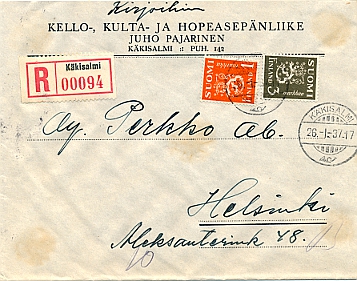 Kirjattu
KELLO-, KULTA- JA HOPEASEPÄNLIIKE
JUHO PAJARINEN
KÄKISALMI :: PUH. 142
R
Käkisalmi
00094
SUOMI
FINLAND
1
markka
SUOMI
FINLAND
3
markkaa
KÄKISALMI
26.-1.-37.-17
Oy. Perkko Ab.
Helsinki
Aleksanterink 48.
10